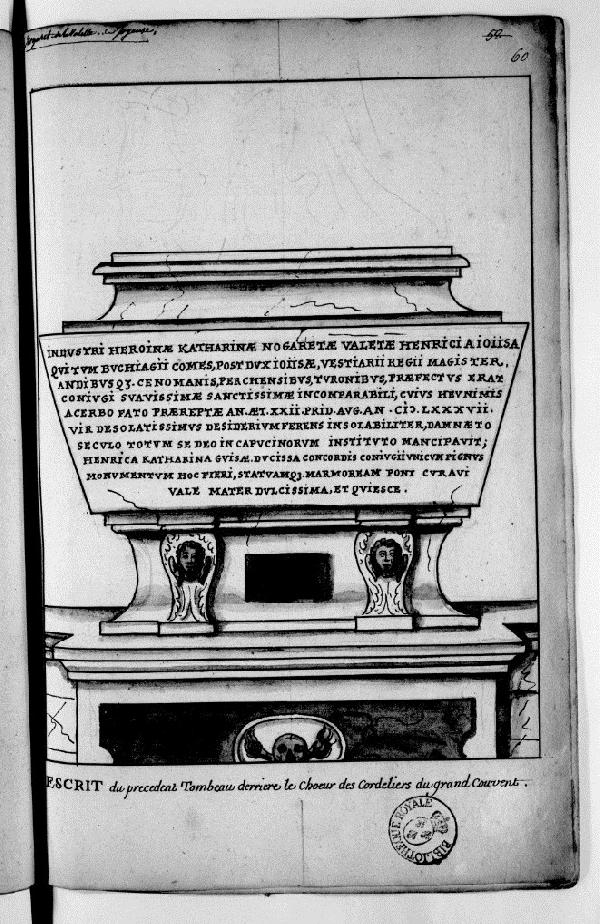 52
60
INDVSTRI HEROINÆ KATHARINÆ NOGARETÆ VALETÆ HENRICI A IOIISA
QVITVM BVCHIAGII COMES, POST DVX IOIISÆ, VESTIARII REGII MAGISTER,
ANDIBVSQZ. CENOMANIS, PERCHENSIBVS, TVRONIBVS, PRÆFECTVS ERAT
CONIVGI SVAVISSIMÆ SANCTISSIMÆ INCOMPARABILI, CVIVS HEVNIMIS
ACERBO FATO PRÆREPTÆ AN. ÆT. XXII. PRID. AVG. AN. CIↃ. LXXXVII.
VIR DESOLATISSIMVS DESIDERIVM FERENS INSOLABILITER, DAMNÆTO
SECVLO TOTVM SE DEO IN CAPVCINORVM INSTITVTO MANCIPAVIT;
HENRICA KATHARINA GVISÆ DVCISSA CONCORDIS CONIVGII VNICVM PIGNVS
MONVMENTVM HOC FIERI, STATVAMQZ. MARMOREAM PONI CVRAVI
VALE MATER DVLCISSIMA, ET QVIESCE.
ESCRIT du precedent Tombeau derriere le Choeur des Cordeliers du grand Couvent.
BIBLIOTHEQUE ROYALE